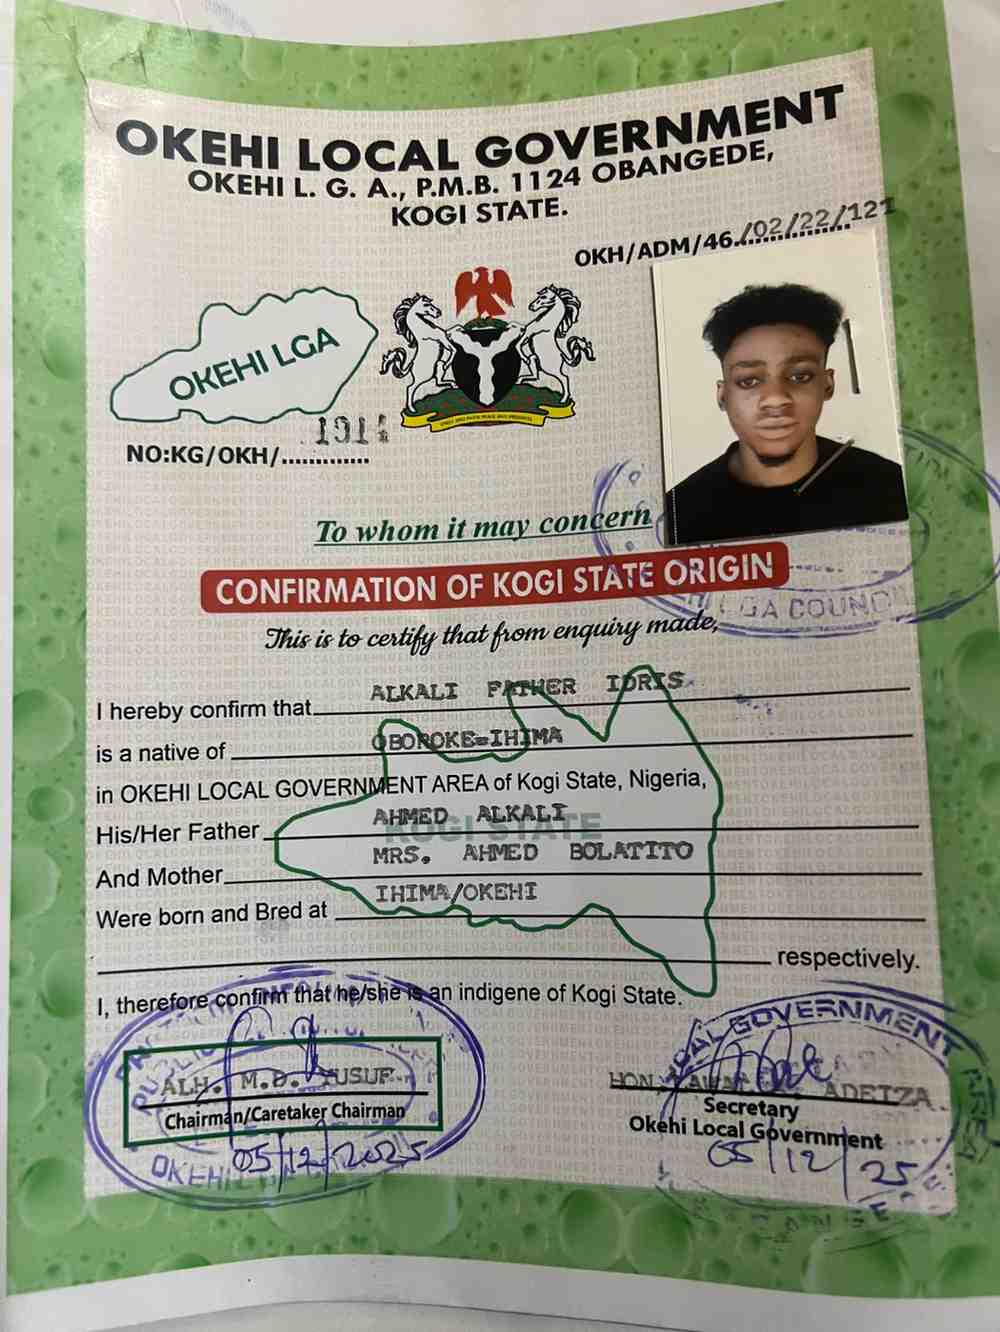 OKEHI LOCAL GOVERNMENT
OKEHI L. G. A., P.M.B. 1124 OBANGEDE,
KOGI STATE.
OKH/ADM/46./02/22/121
OKEHI LGA
NO:KG/OKH/.............
1914
To whom it may concern
CONFIRMATION OF KOGI STATE ORIGIN
LGA COUNC
This is to certify that from enquiry made,
I hereby confirm that ALKALI FATHER IDRIS
is a native of OBOROKE=IHIMA
in OKEHI LOCAL GOVERNMENT AREA of Kogi State, Nigeria,
His/Her Father AHMED ALKALI
KOGI STATE
And Mother MRS. AHMED BOLATITO
Were born and Bred at IHIMA/OKEHI
respectively.
I, therefore confirm that he/she is an indigene of Kogi State.
ALH. M.D. YUSUF
Chairman/Caretaker Chairman
05/12/2025
OKEHI
LOCAL GOVERNMENT AREA
HON. ADEIZA.
Secretary
Okehi Local Government
05/12/25